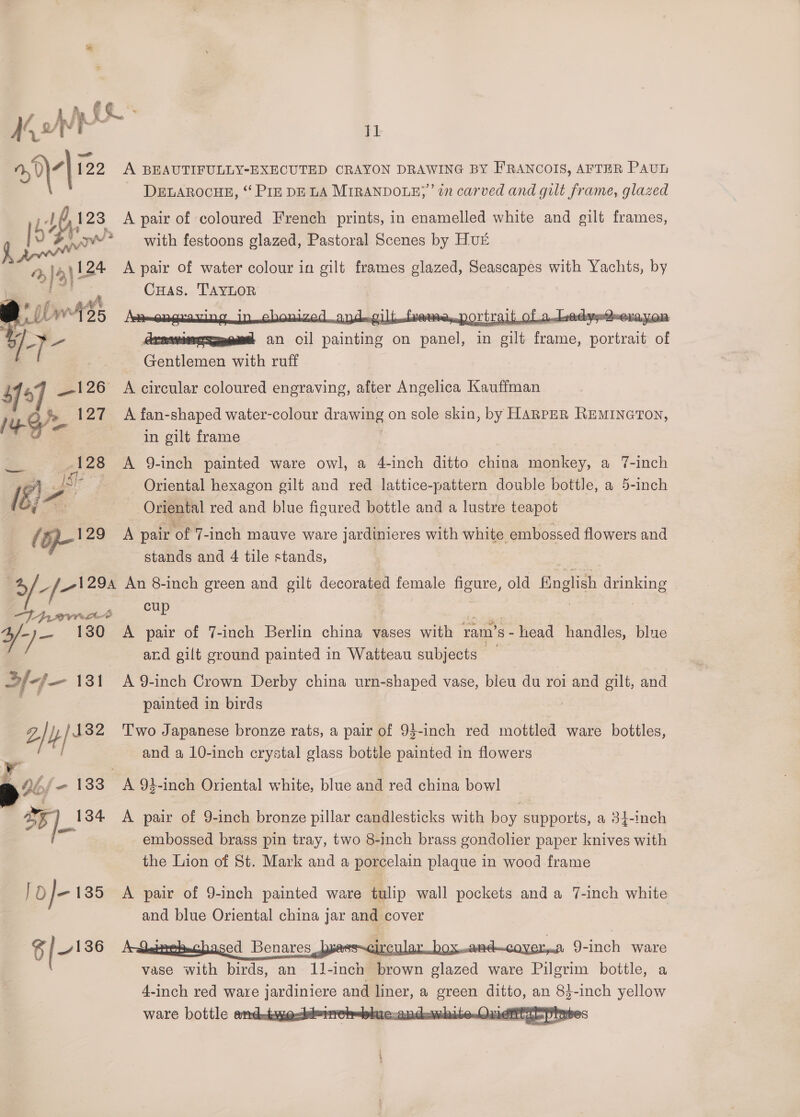 11
122 A BEAUTIFULLY-EXECUTED CRAYON DRAWING BY FRANCOIS, AFTER PAUL
DELAROCHE, “PIE DE LA MIRANDOLE,” in carved and gilt frame, glazed
123 A pair of coloured French prints, in enamelled white and gilt frames,
with festoons glazed, Pastoral Scenes by Huê
124 A pair of water colour in gilt frames glazed, Seascapes with Yachts, by
CHAS. TAYLOR
125 An engraving in ebonized and gilt frame, portrait of a Lady, 2 crayon
drawings and an oil painting on panel, in gilt frame, portrait of
Gentlemen with ruff
126 A circular coloured engraving, after Angelica Kauffman
127 A fan-shaped water-colour drawing on sole skin, by HARPER REMINGTON,
in gilt frame
128 A 9-inch painted ware owl, a 4-inch ditto china monkey, a 7-inch
Oriental hexagon gilt and red lattice-pattern double bottle, a 5-inch
Oriental red and blue figured bottle and a lustre teapot
129 A pair of 7-inch mauve ware jardinieres with white embossed flowers and
stands and 4 tile stands,
129A An 8-inch green and gilt decorated female figure, old English drinking
cup
130 A pair of 7-inch Berlin china vases with ram's-head handles, blue
and gilt ground painted in Watteau subjects
131 A 9-inch Crown Derby china urn-shaped vase, bleu du roi and gilt, and
painted in birds
132 Two Japanese bronze rats, a pair of 9½-inch red mottled ware bottles,
and a 10-inch crystal glass bottle painted in flowers
133 A 9½-inch Oriental white, blue and red china bowl
134 A pair of 9-inch bronze pillar candlesticks with boy supports, a 3½-inch
embossed brass pin tray, two 8-inch brass gondolier paper knives with
the Lion of St. Mark and a porcelain plaque in wood frame
10/- 135 A pair of 9-inch painted ware tulip wall pockets and a 7-inch white
and blue Oriental china jar and cover
136 A 9-inch chased Benares brass circular box and cover, a 9-inch ware
vase with birds, an 11-inch brown glazed ware Pilgrim bottle, a
4-inch red ware jardiniere and liner, a green ditto, an 8½-inch yellow
ware bottle and two blue and white Oriental plates